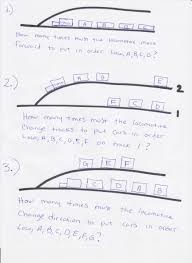 1.)
A B C D
How many times must the locomotive move
forward to put in order Loco, A, B, C, D?
2.)
A B E
2
E C D
1
How many times must the locomotive
Change tracks to put cars in order
Loco, A, B, C, D, E on track 1?
3.)
G E F
C D A B
How many times must the locomotive
Change direction to put cars in order
Loco, A, B, C, D, E, F, G?